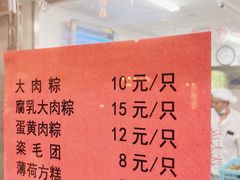 大肉粽 10元/只
腐乳大肉粽 15元/只
蛋黄肉粽 12元/只
粢毛团 8元/只
薄荷方糕